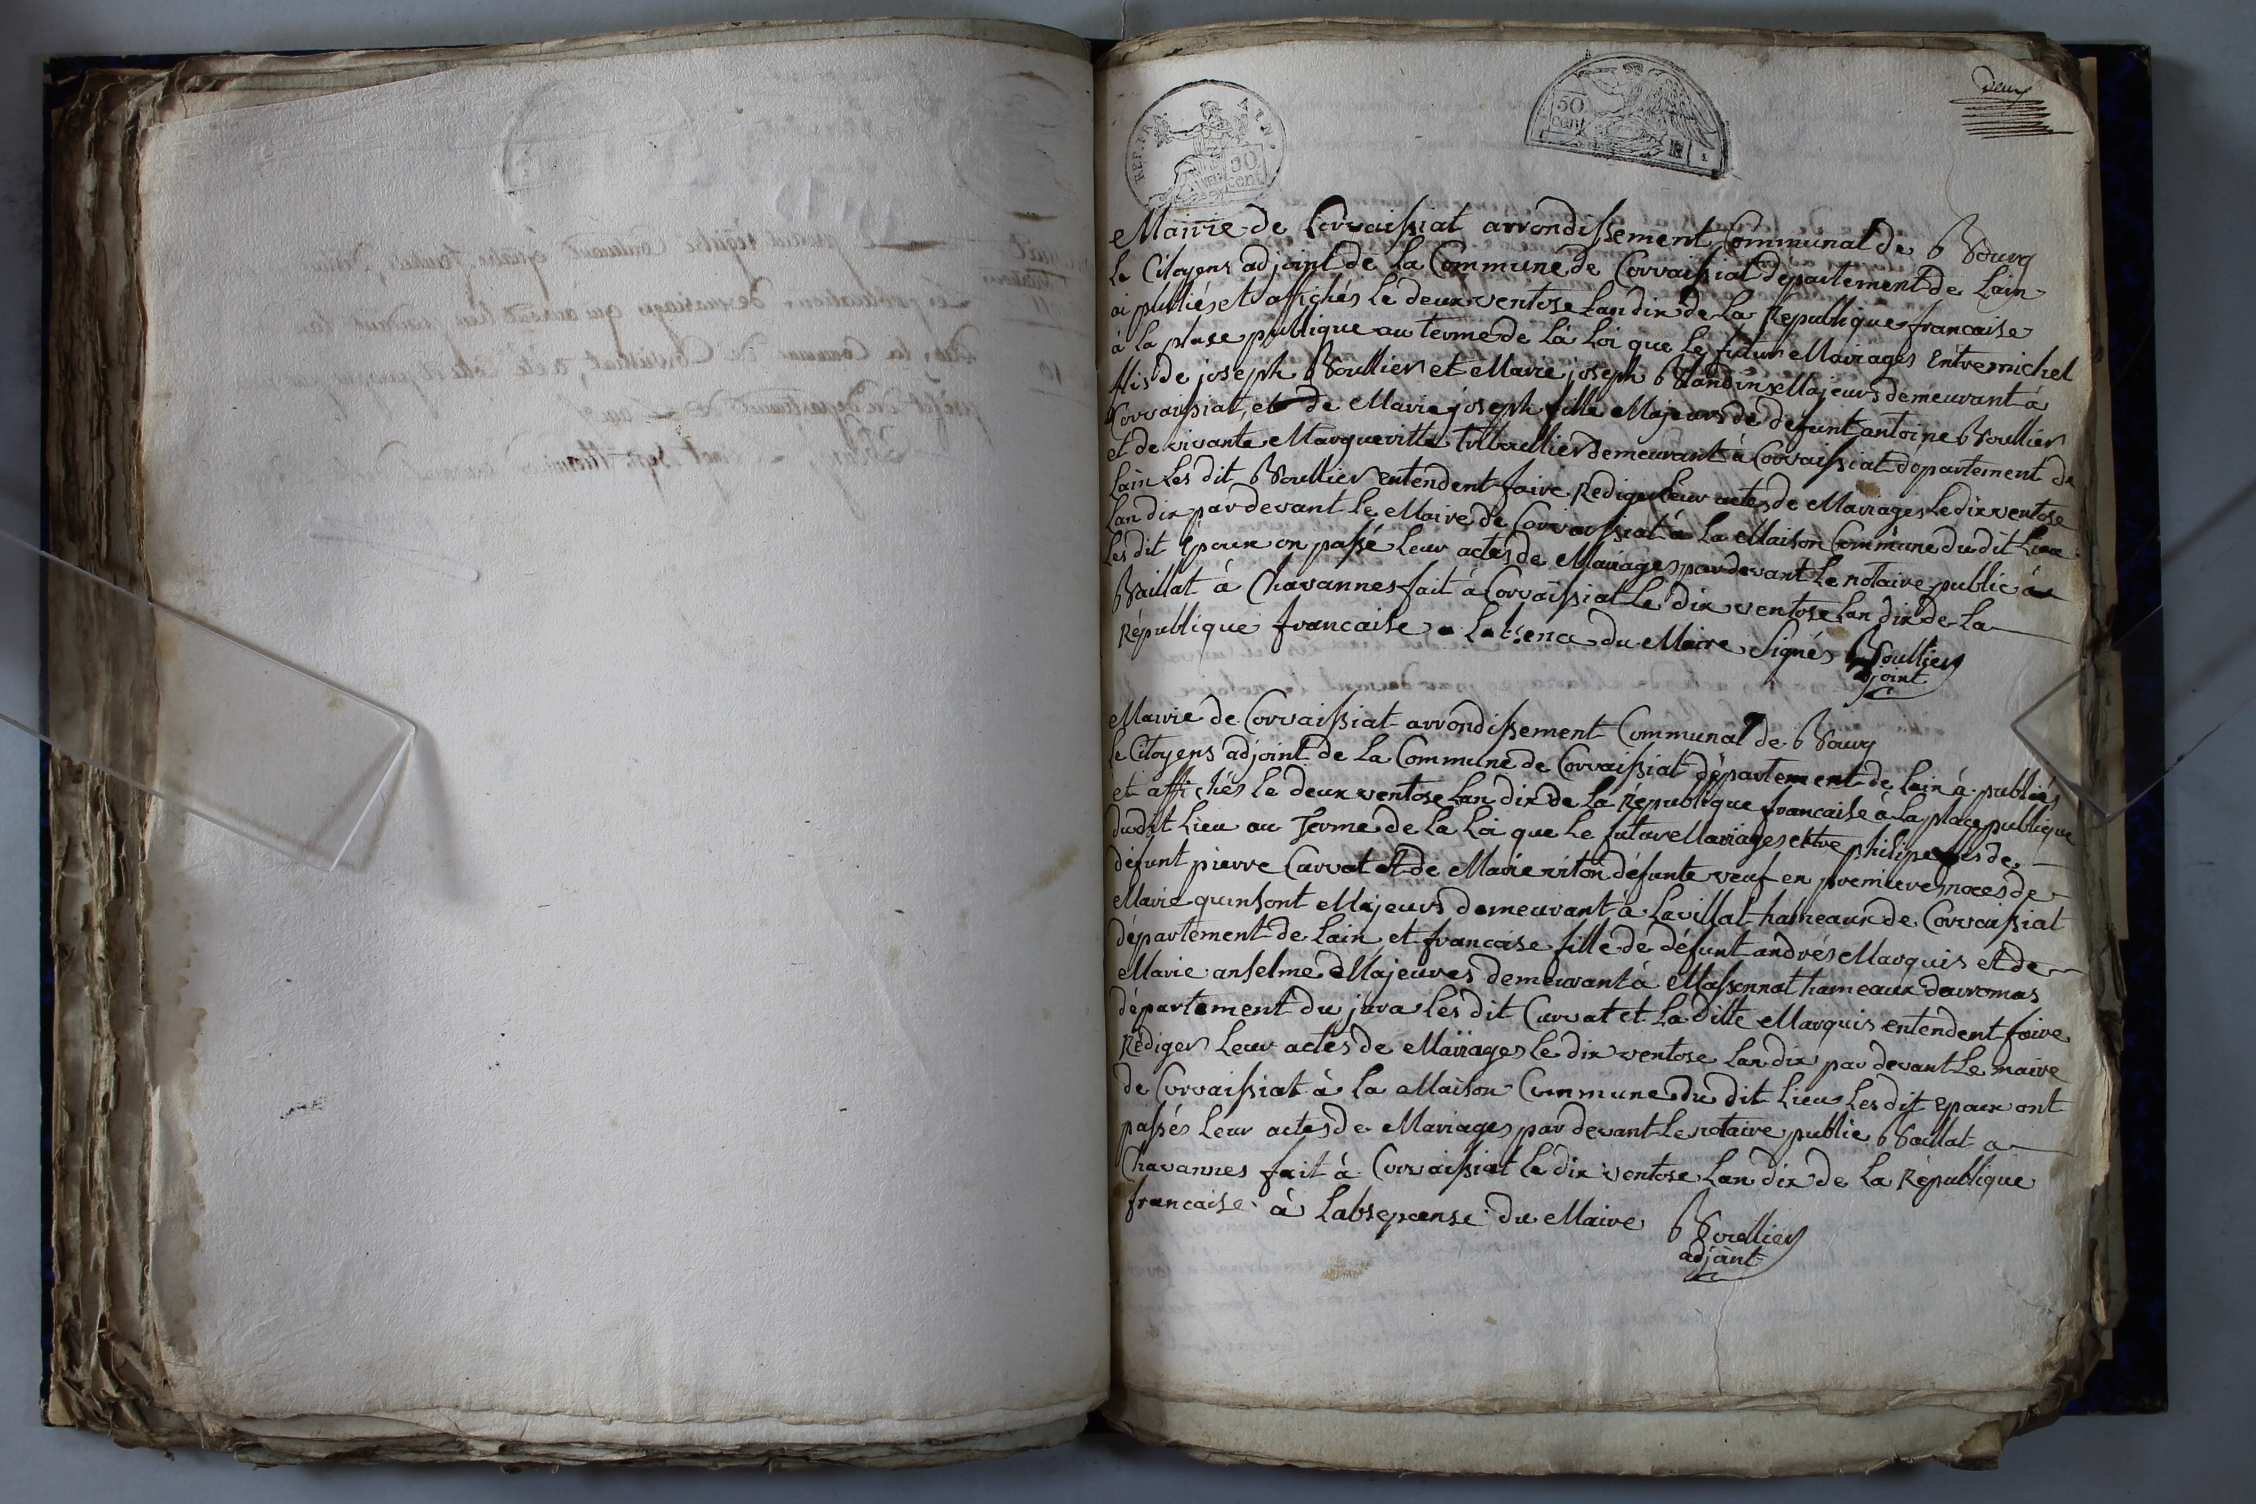 deux
REP. FRA
50 cent
50 cent
Mairie de Corvaissiat arrondissement Communal de Bourg
Le Citoyens adjoint de La Commune de Corvaissiat département de Lain
ai publiés et affichés le deux ventose Lan dix de La Republique francaise
à La plase publique au terme de Là Loi que Le futur Mariages Entre michel
flis de joseph Boullier et Marie joseph Blandin Majeurs demeurant à
Corvaissiat, et de Marie joseph fille Majeurs de defunt antoine Boullier
et de vivante Margueritte triboullier demeurant à Corvaissiat département de
Lain Les dit Boullier entendent faire Rediger Leur actes de Mariages Le dix ventose
Lan dix par devant Le Maire de Corvaissiat à La Maison Commune du dit Lieu
Les dit Epoux on passé Leur actes de Mariages par devant Le notaire public à
Baillat à Chavannes fait à Corvaissiat Le dix ventose Lan dix de La
République francaise a Labsence du Maire Signés Boullier
adjoint
Mairie de Corvaissiat arrondissement Communal de Bourg
le Citoyens adjoint de La Commune de Corvaissiat département de Lain à publiés
et affichés Le deux ventose Lan dix de La République francaise à La place publique
dudit Lieu au Terme de La Loi que Le future Mariages entre philipe fils de
défunt pierre Carvat et de Marie viton défunte veuf en premiere noces de
Marie quinsont Majeurs demeurant à Lavillat hameaux de Corvaissiat
département de Lain et francoise fille de défunt andrés Marquis et de
Marie anselme Majeures demeurant à Massonnat hameaux daromas
département du jura Les dit Carvat et La ditte Marquis entendent faire
Rédiger Leur actes de Mariages Le dix ventose Lan dix par devant Le maire
de Corvaissiat à La Maison Commune du dit Lieu Les dit epoux ont
passés Leur actes de Mariages par devant Le notaire public Baillat a
Chavannes fait à Corvaissiat Le dix ventose Lan dix de La République
francaise à Labsepense du Maire Boullier
adjoint